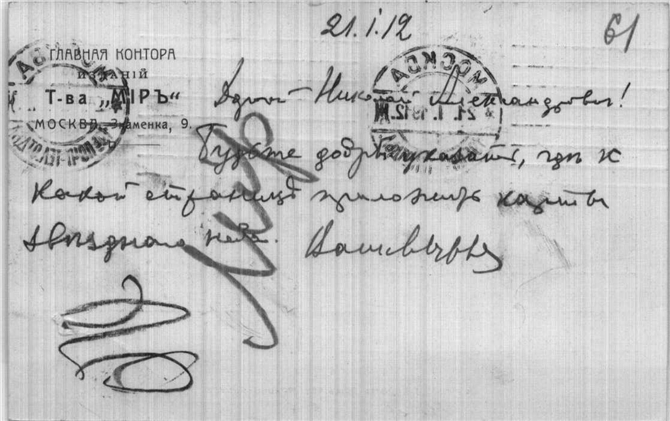 21.I.12
61
ГЛАВНАЯ КОНТОРА
ИЗДАНІЙ
Т-ва „МІРЪ“
МОСКВА, Знаменка, 9.
МОСКВА
21.1.1912
Дорогой Николай Александровичъ!
Будьте добры указать, гдѣ къ
какой страницѣ приложить карты
звѣзднаго неба.
Миръ